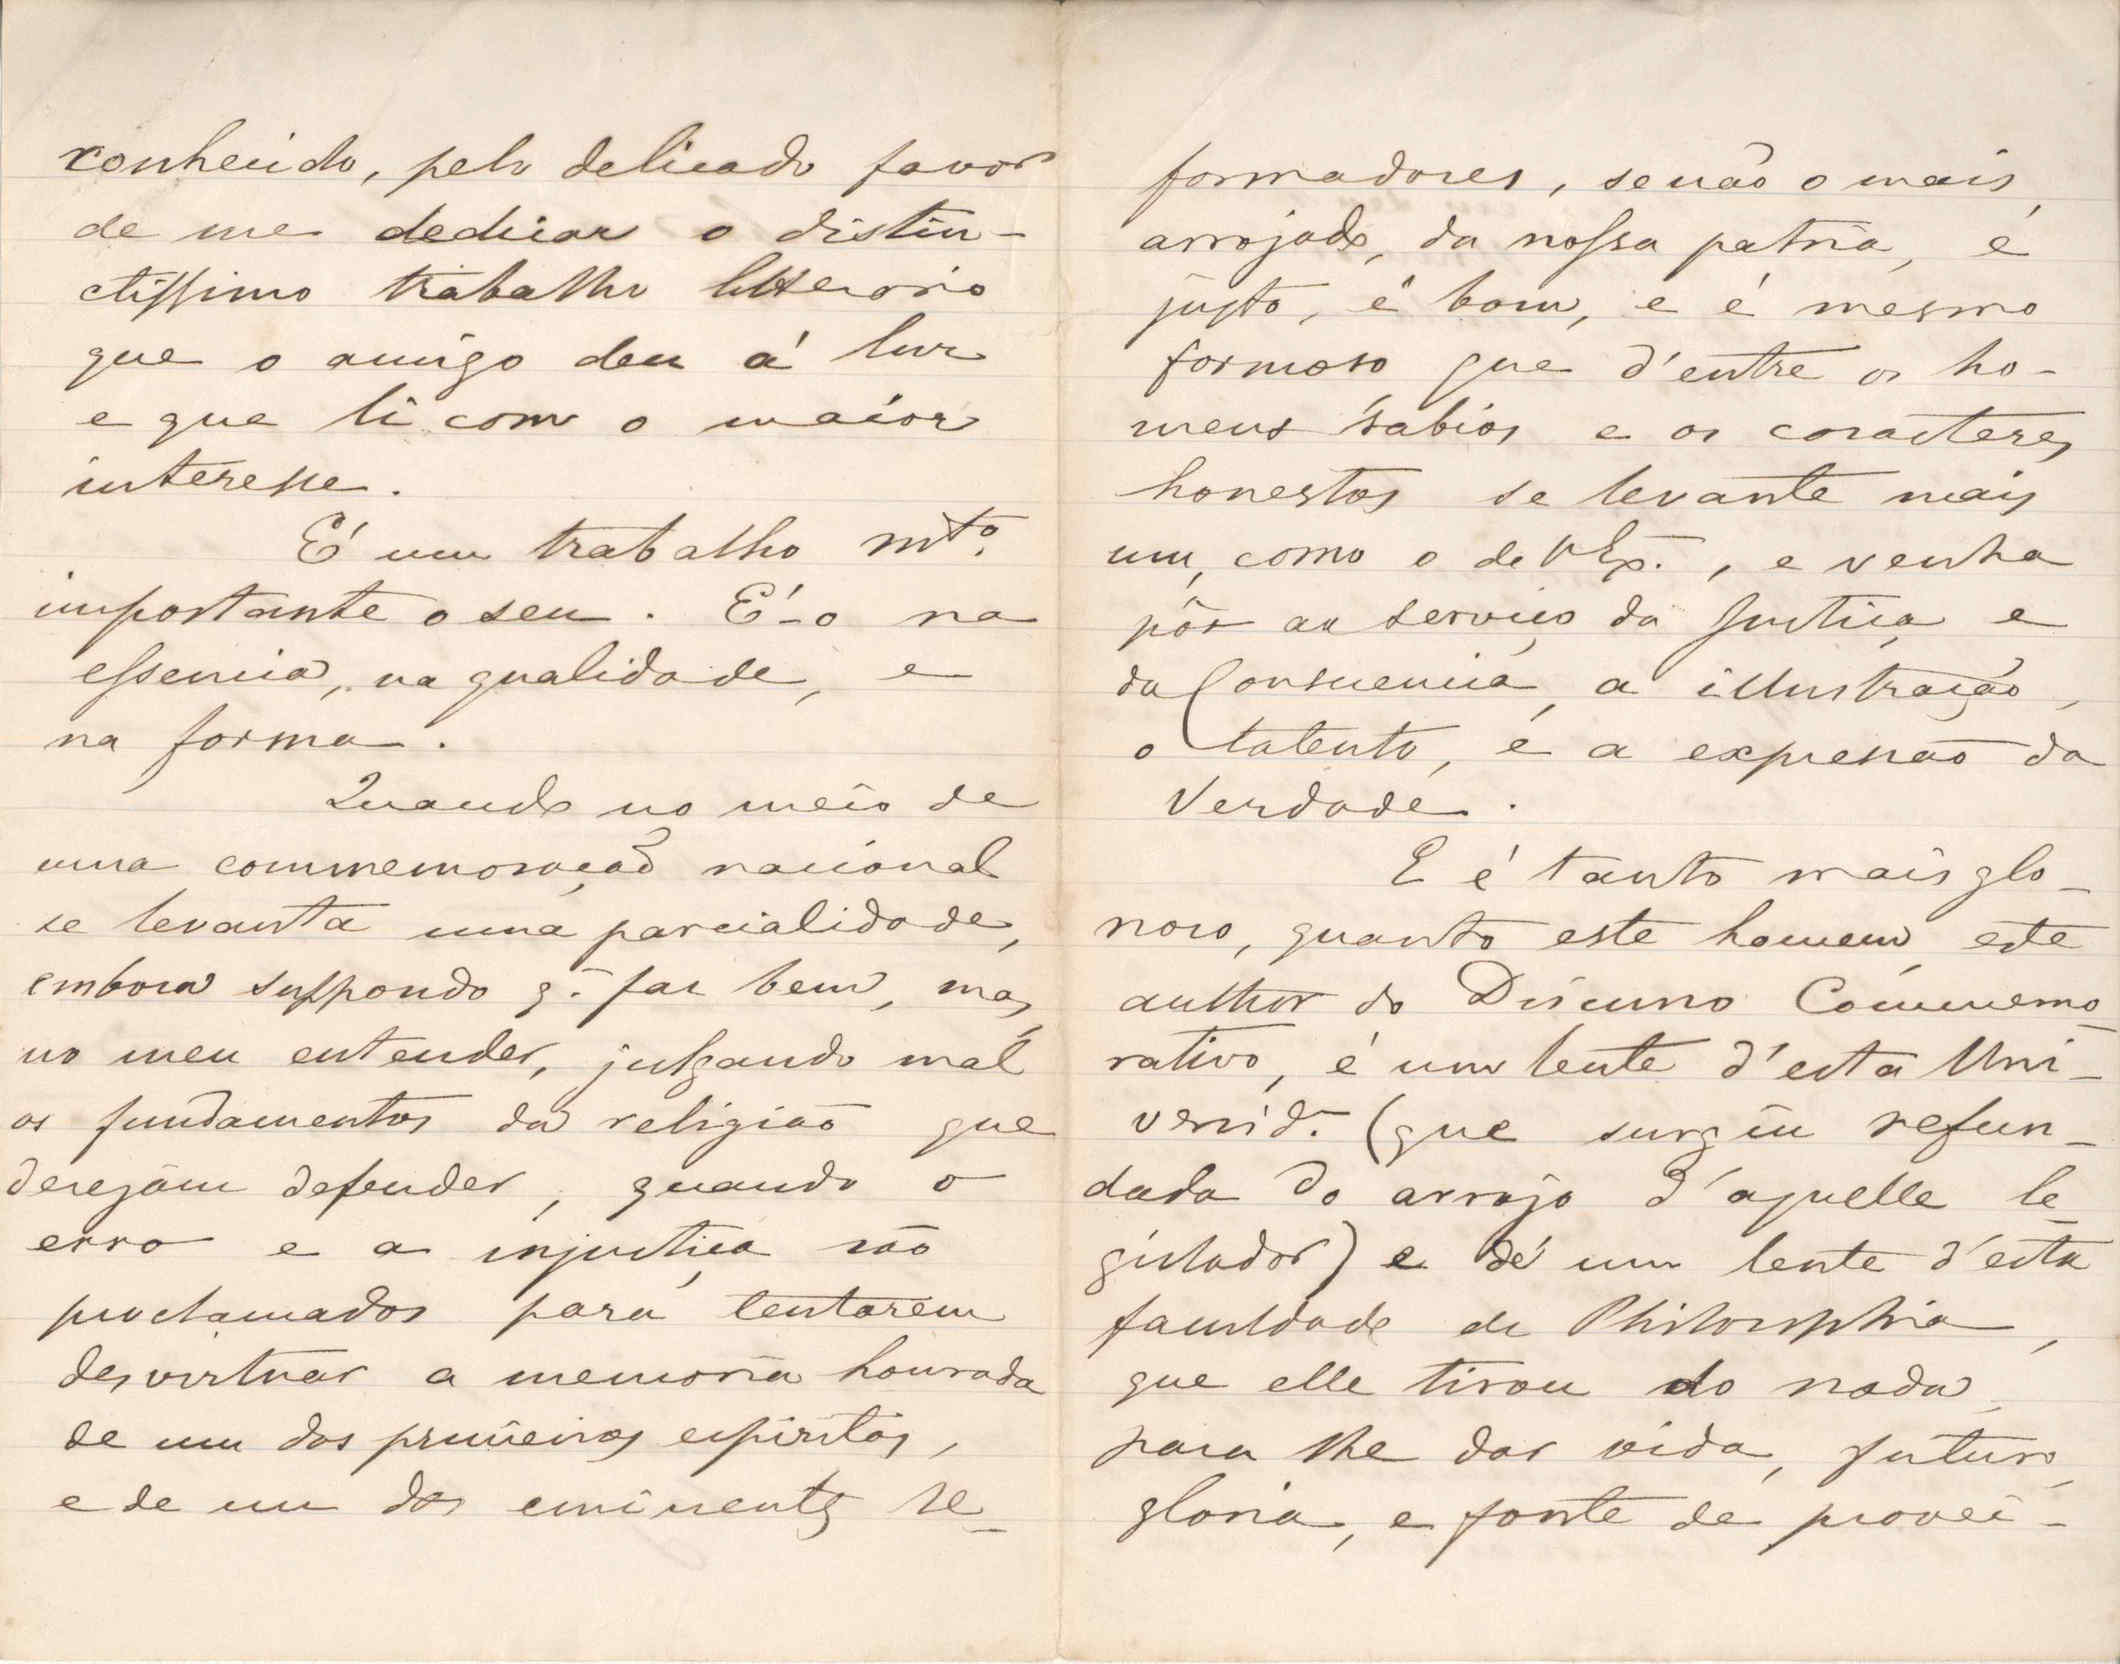 conhecido, pelo delicado favor
de me dedicar o distin-
ctissimo trabalho litterario
que o amigo deu á luz
e que li com o maior
interesse.
É um trabalho mto.
importante o seu. É-o na
essencia, na qualidade, e
na forma.
Quando no meio de
uma commemoração nacional
se levanta uma parcialidade,
embora suppondo q. faz bem, mas,
no meu entender, julgando mal
os fundamentos da religião que
desejam defender, quando o
erro e a injustiça são
proclamados para tentarem
desvirtuar a memoria honrada
de um dos primeiros espiritos,
e de um dos eminentes re-
formadores, senão o mais
arrojado, da nossa patria, é
justo, é bom, e é mesmo
formoso que d'entre os ho-
mens sabios e os caracteres
honestos se levante mais
um, como o de VEx.., e venha
pôr ao serviço da Justiça e
da Consciencia, a illustração,
o talento, e a expressão da
Verdade.
E é tanto mais glo-
rioso, quanto este homem, este
author do Discurso Commemo
rativo, é um lente d'esta Uni-
versid.e (que surgiu refun-
dada do arrojo d'aquelle le-
gislador) e é um lente d'esta
faculdade de Philosophia,
que elle tirou do nada,
para lhe dar vida, futuro,
gloria, e fonte de provei-